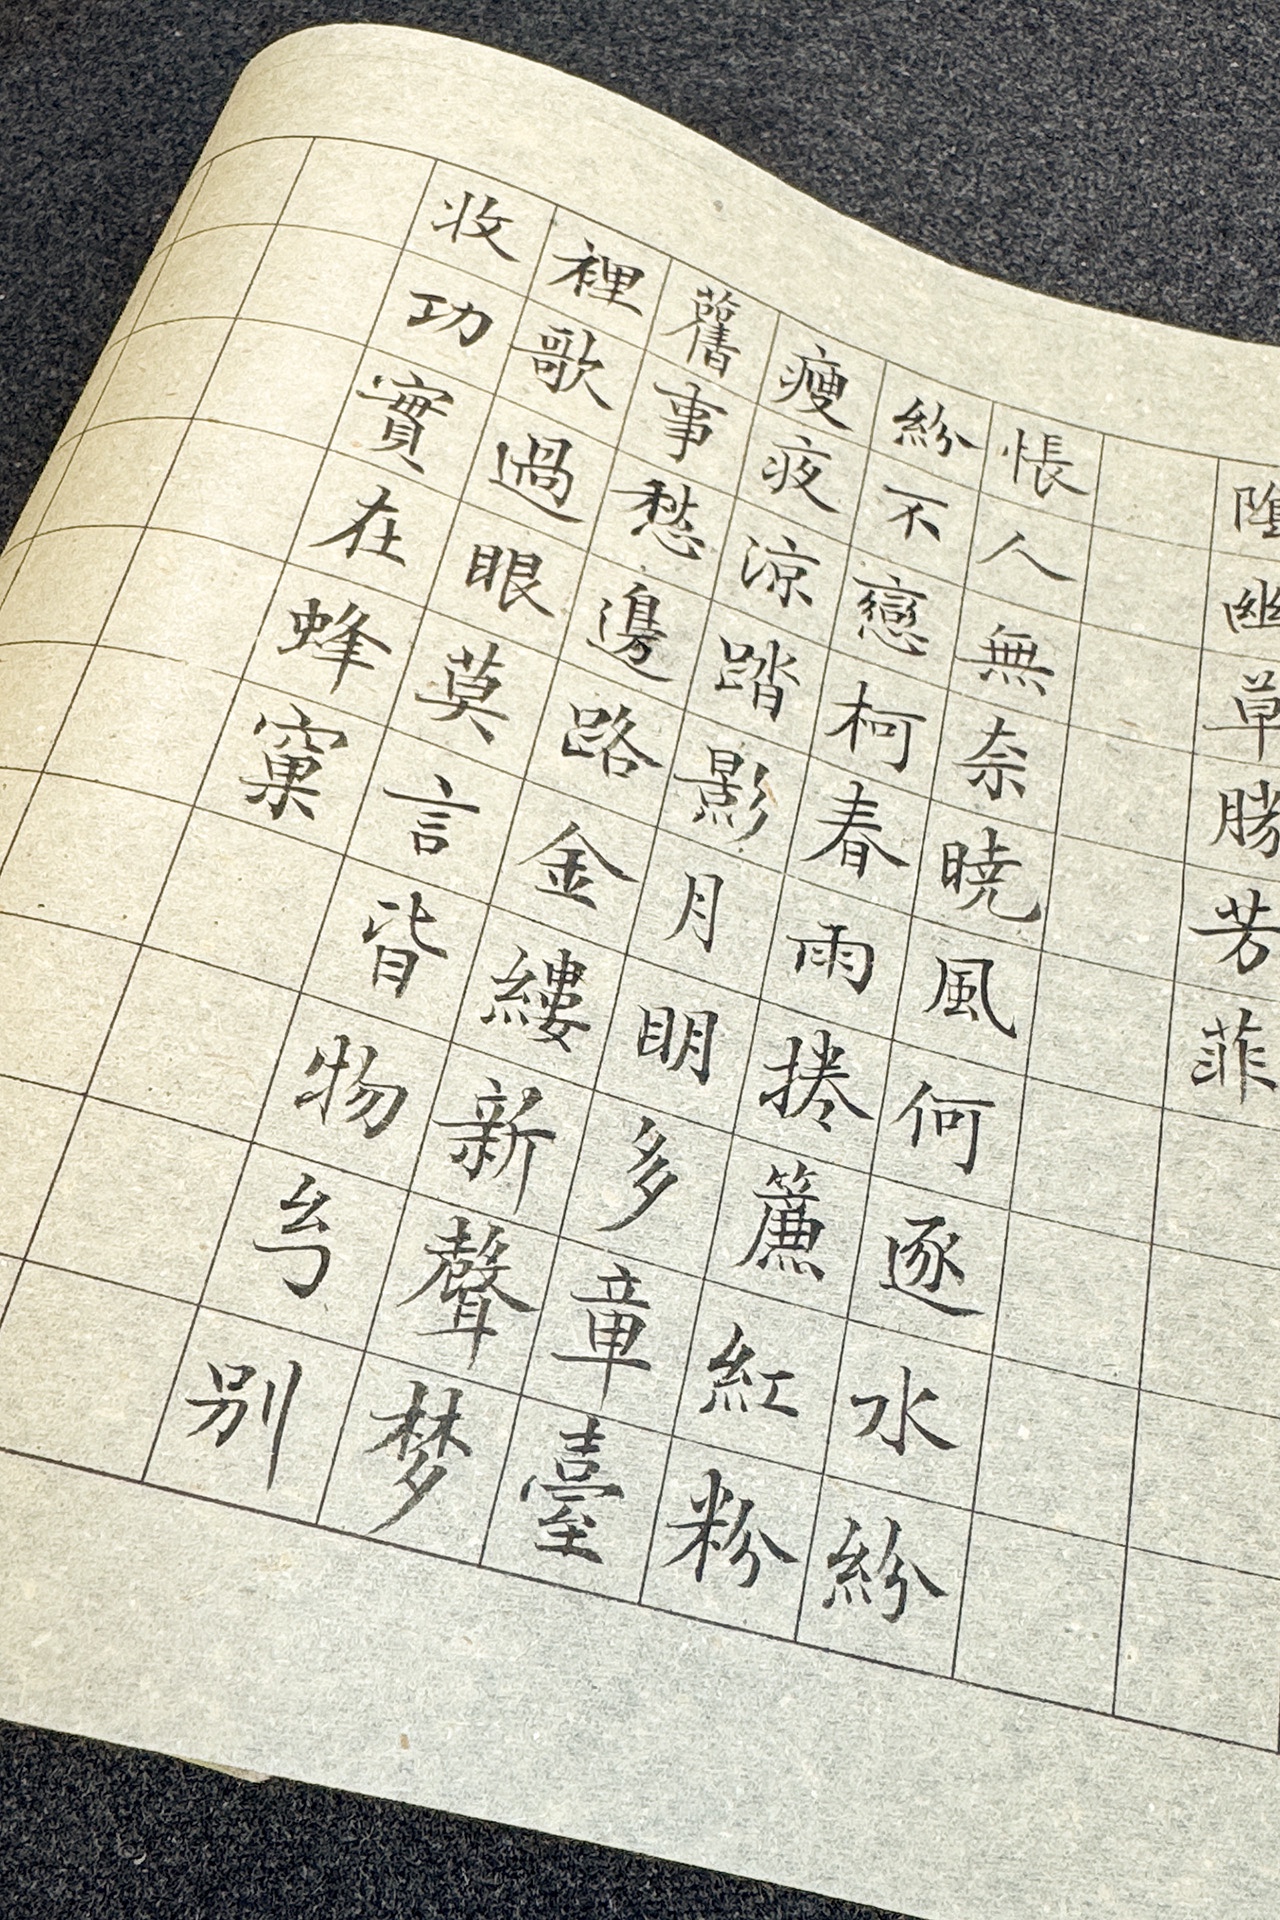 陰幽草勝芳菲
悵人無奈暁風何逐水紛
紛不戀柯春雨捲簾紅粉
瘦夜涼踏影月明多章臺
舊事愁邊路金縷新聲梦
裡歌過眼莫言皆物幻別
收功實在蜂窠